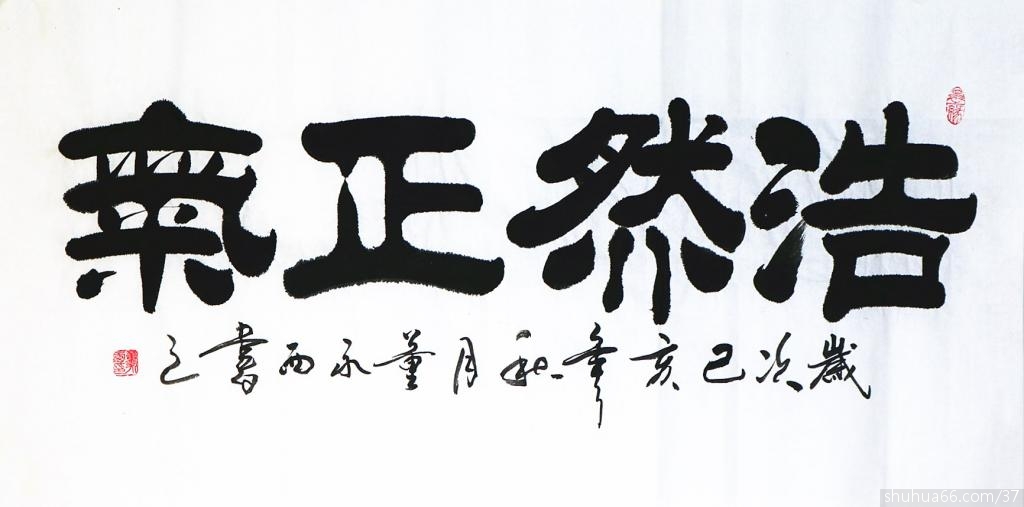 浩然正氣
歲次己亥年秋月董永西書之
shuhua66.com/37